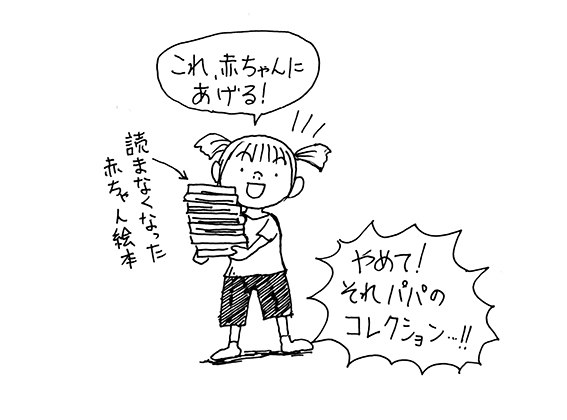 これ、赤ちゃんに
あげる!
読まなくなった
赤ちゃん絵本
やめて!
それパパの
コレクション…!!